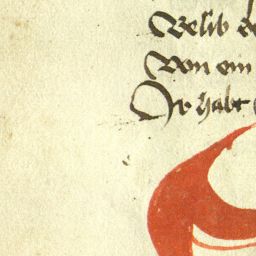 Belib de
Von ein
Ir habt